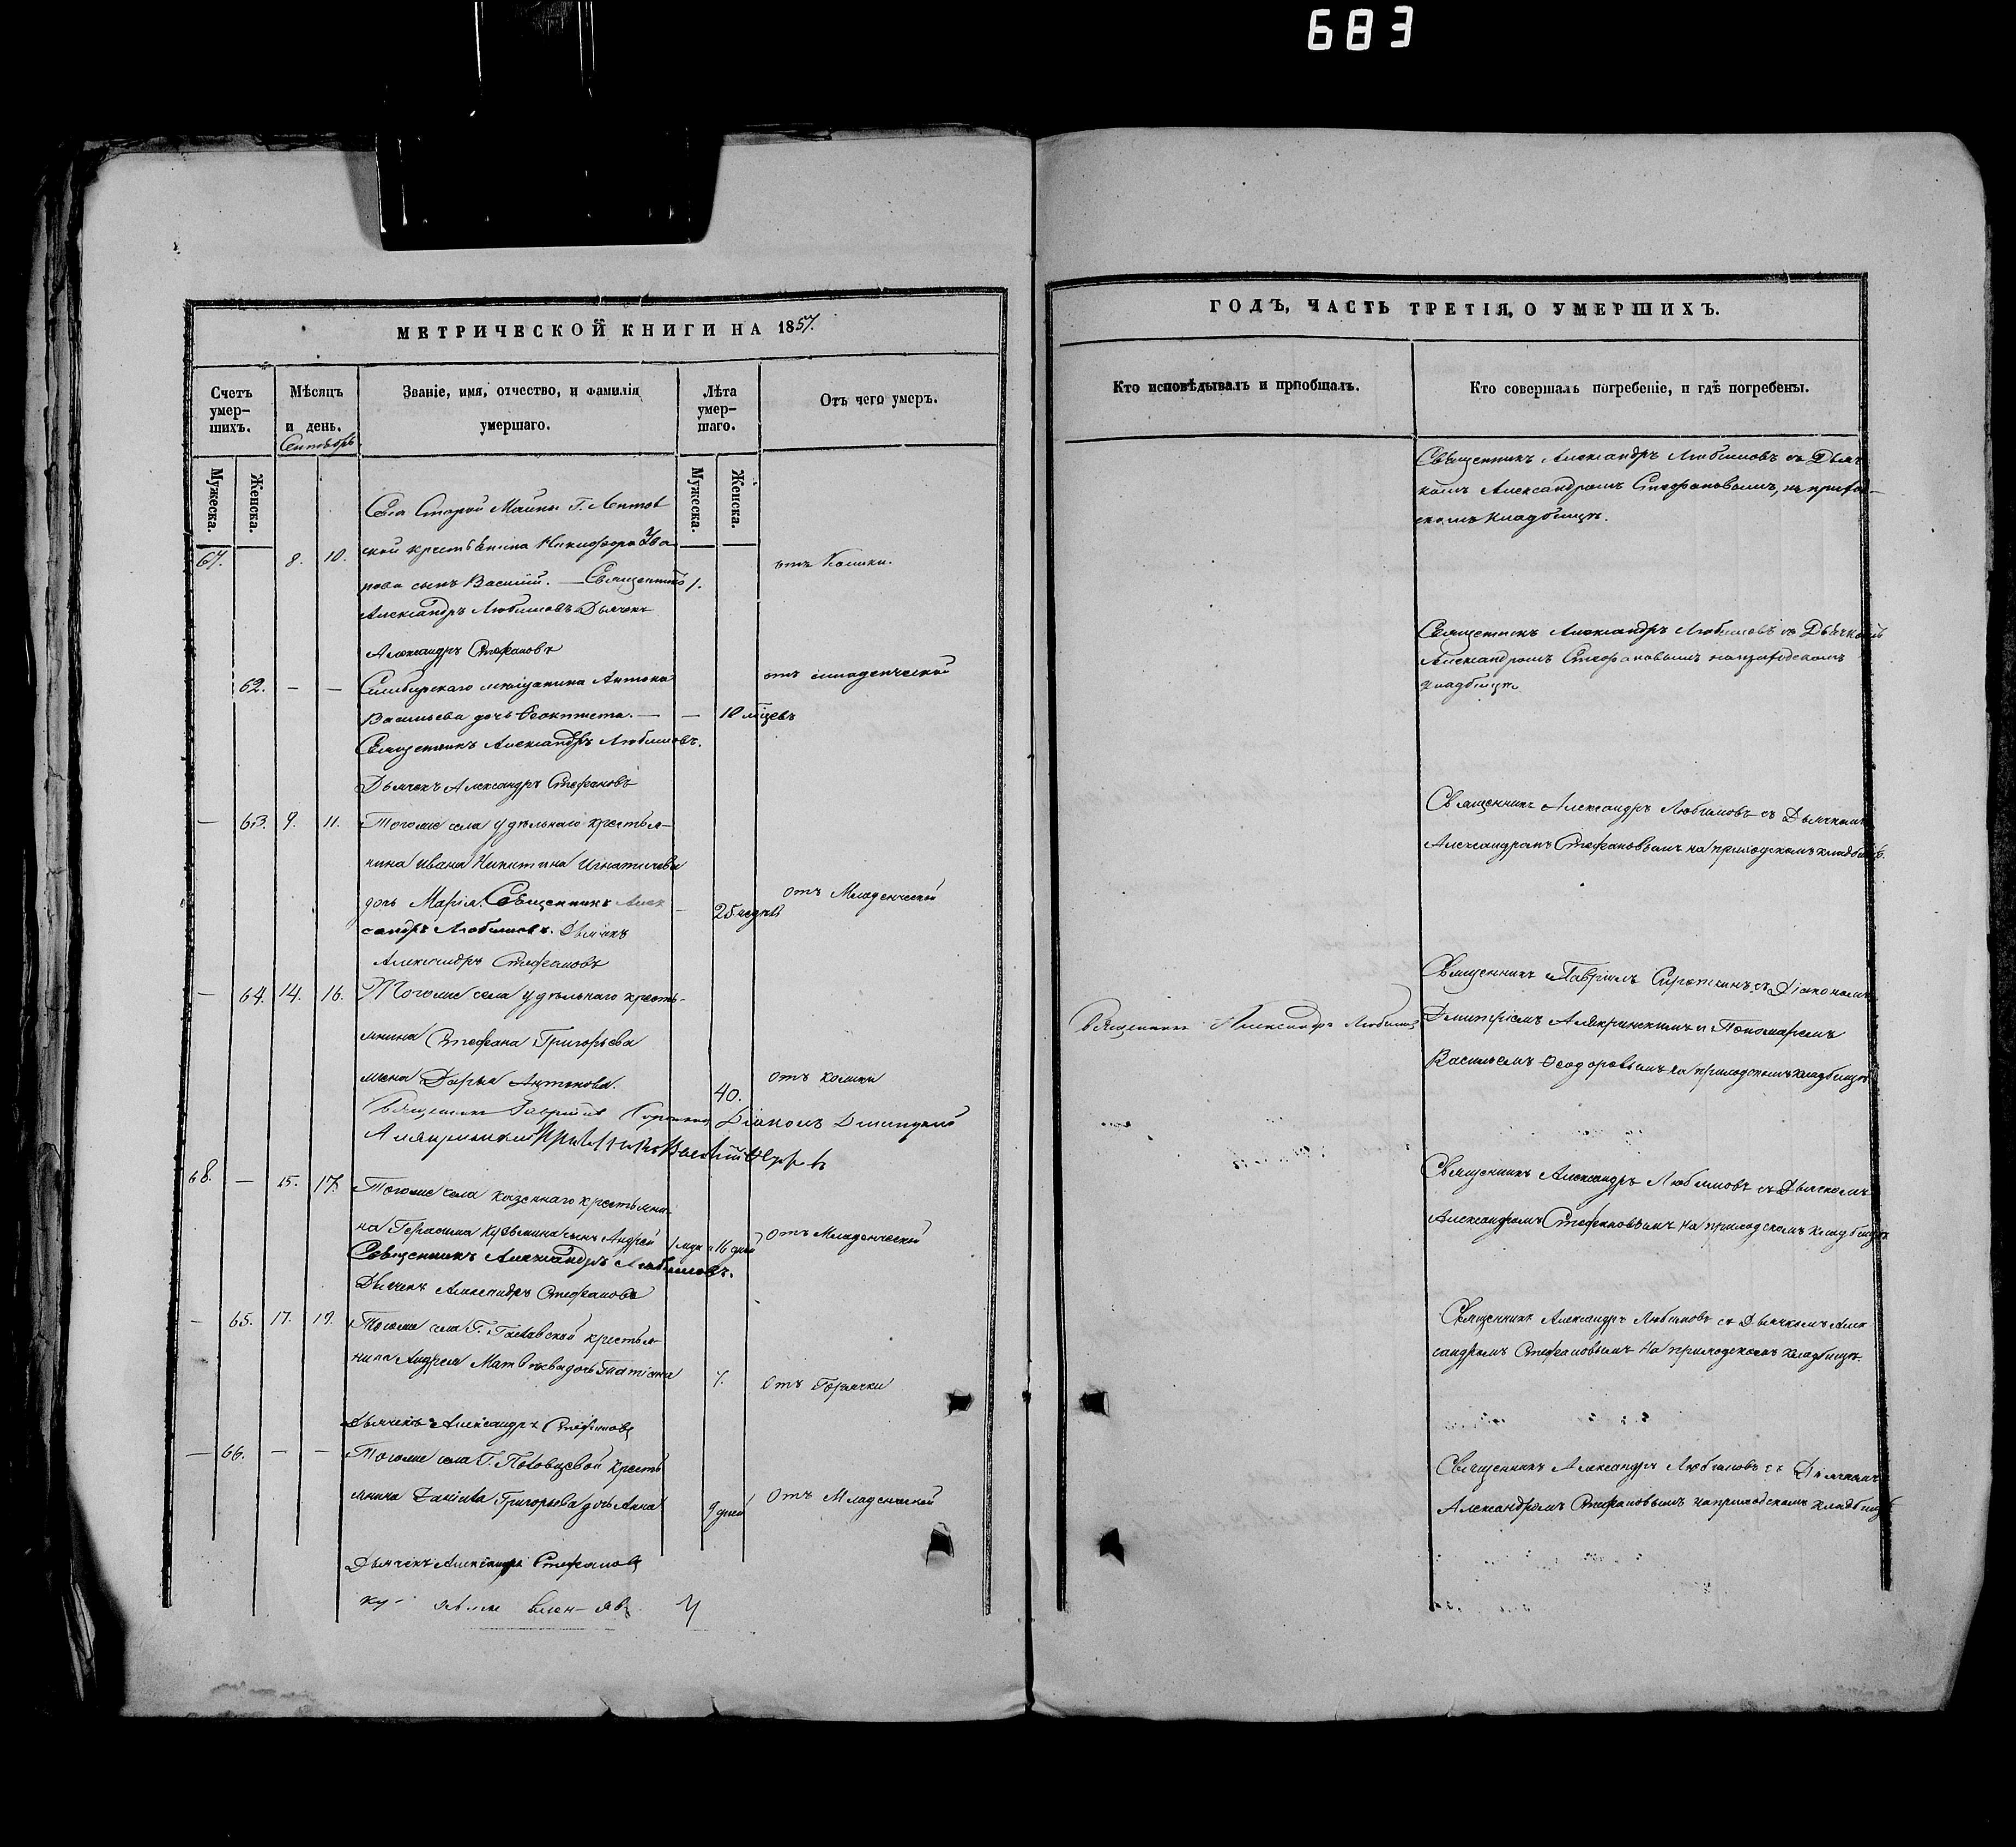 683
МЕТРИЧЕСКОЙ КНИГИ НА 1857.
Счетъ умершихъ.
Мѣсяцъ и день.
Сентябрь
Званіе, имя, отчество, и фамилія умершаго.
Лѣта умершаго.
Отъ чего умеръ.
Мужеска.
Женска.
Мужеска.
Женска.
Села Старой Майны Г.
67. 8. 10. Никифора Ива
нова сынъ Василій. — Священникъ 1. отъ Колики.
Александръ Любимовъ Дьячекъ
Александръ Стефановъ
62. — — Симбирскаго мѣщанина Антона отъ младенческой
Васильева дочь Феоктиста. — — 10 мѣцевъ
Священникъ Александръ Любимовъ.
Дьячекъ Александръ Стефановъ
— 63. 9. 11. Тогоже села удѣльнаго крестья-
нина Ивана Никитина Игнатьева
дочь Марія. Священникъ Алек — 25 недѣль отъ Младенческой
сандръ Любимовъ. Дьячекъ
Александръ Стефановъ
— 64. 14. 16. Тогоже села удѣльнаго кресть-
янина Стефана Григорьева
жена Дарья Антонова. 40. отъ колики
Священникъ Гавріилъ Діаконъ Дмитрій
68. — 15. 17. Тогоже села казеннаго крестьяни
на Герасима Кузьмина сынъ Андрей 16 дней отъ Младенческой
Священникъ Александръ Любимовъ.
Дьячекъ Александръ Стефановъ
— 65. 17. 19. Тогоже села Г. крестья
нина Андрея Матвѣева дочь Татіана 7. Отъ Горячки
Дьячекъ Александръ Стефановъ
— 66. — — Тогоже села Г. кресть
янина Григорьева дочь Анна 9 дней отъ Младенческой
Дьячекъ Александръ Стефановъ
ГОДЪ, ЧАСТЬ ТРЕТІЯ, О УМЕРШИХЪ.
Кто исповѣдывалъ и пріобщалъ.
Кто совершалъ погребеніе, и гдѣ погребены.
Священникъ Александръ Любимовъ съ Дьяч
комъ Александромъ Стефановымъ, на приход-
скомъ кладбищѣ.
Священникъ Александръ Любимовъ съ Дьячкомъ
Александромъ Стефановымъ на приходскомъ
кладбищѣ.
Священникъ Александръ Любимовъ съ Дьячкомъ
Александромъ Стефановымъ на приходскомъ кладбищѣ.
Священникъ Гавріилъ Сироткинъ съ Діакономъ
Священникъ Александръ Любимовъ
Дмитріемъ Алякринскимъ и Пономаремъ
Васильемъ Ѳеодоровымъ на приходскомъ кладбищѣ
Священникъ Александръ Любимовъ съ Дьячкомъ
Александромъ Стефановымъ на приходскомъ кладбищѣ
Священникъ Александръ Любимовъ съ Дьячкомъ Алек
сандромъ Стефановымъ на приходскомъ кладбищѣ.
Священникъ Александръ Любимовъ съ Дьячкомъ
Александромъ Стефановымъ на приходскомъ кладбищѣ